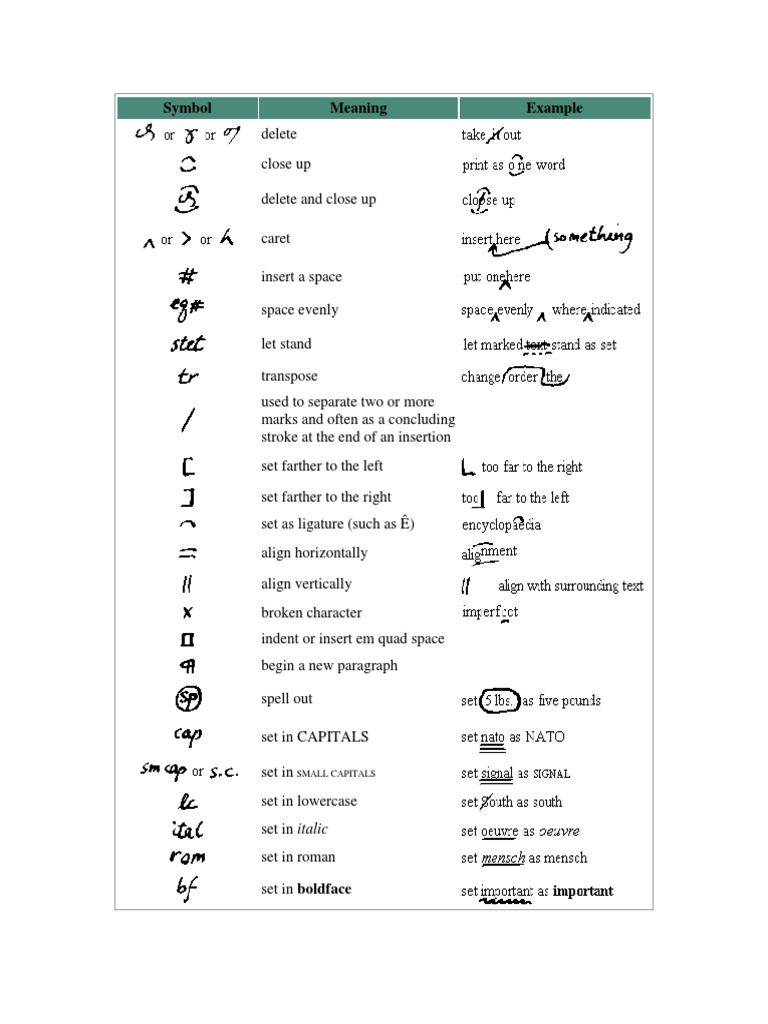 Symbol Meaning Example
or or delete take it out
close up print as one word
delete and close up cloose up
^ or > or caret insert here (something
# insert a space put onehere
eq# space evenly space evenly where indicated
stet let stand let marked text stand as set
tr transpose change order the
used to separate two or more
/ marks and often as a concluding
stroke at the end of an insertion
[ set farther to the left too far to the right
] set farther to the right too far to the left
set as ligature (such as Ê) encyclopaedia
= align horizontally alignment
|| align vertically || align with surrounding text
x broken character imperfect
indent or insert em quad space
¶ begin a new paragraph
sp spell out set 5 lbs. as five pounds
cap set in CAPITALS set nato as NATO
sm cap or s.c. set in SMALL CAPITALS set signal as SIGNAL
lc set in lowercase set South as south
ital set in italic set oeuvre as oeuvre
rom set in roman set mensch as mensch
bf set in boldface set important as important